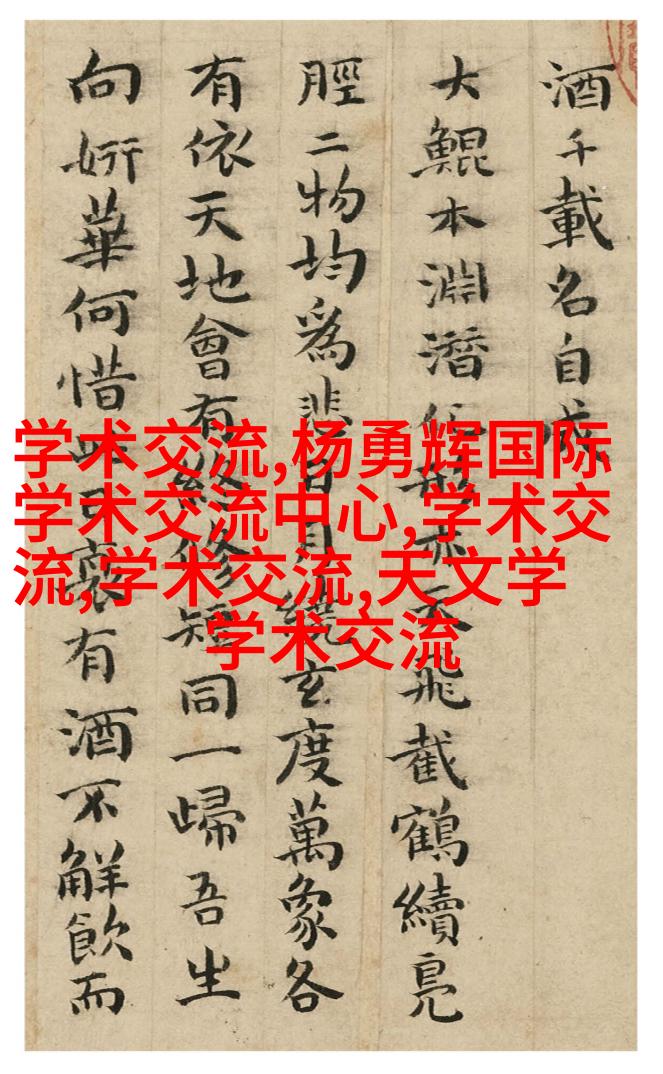 酒千載名自
大鯤本淵潛形亦天飛截鶴續鳧
脛二物均爲悲日月繞玄度萬象各
有依天地會有終修短同一歸吾生
向妍華何惜此日衰有酒不解飲而
学术交流,杨勇辉国际
学术交流中心,学术交
流,学术交流,天文学
学术交流